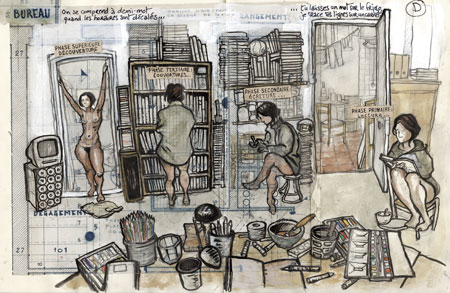 BUREAU
On se comprend à demi-mot
quand les horaires sont décalés...
...Tu laisses un mot sur le frigo,
je trace des lignes sur un carnet
D
27
DÉGAGEMENT
PHASE SUPERIEURE
DÉCOUVERTURE...
PHASE TERTIAIRE
COUVERTURES...
PHASE SECONDAIRE
ECRITURE...
PHASE PRIMAIRE
LECTURE...
DÉGAGEMENT
27
101